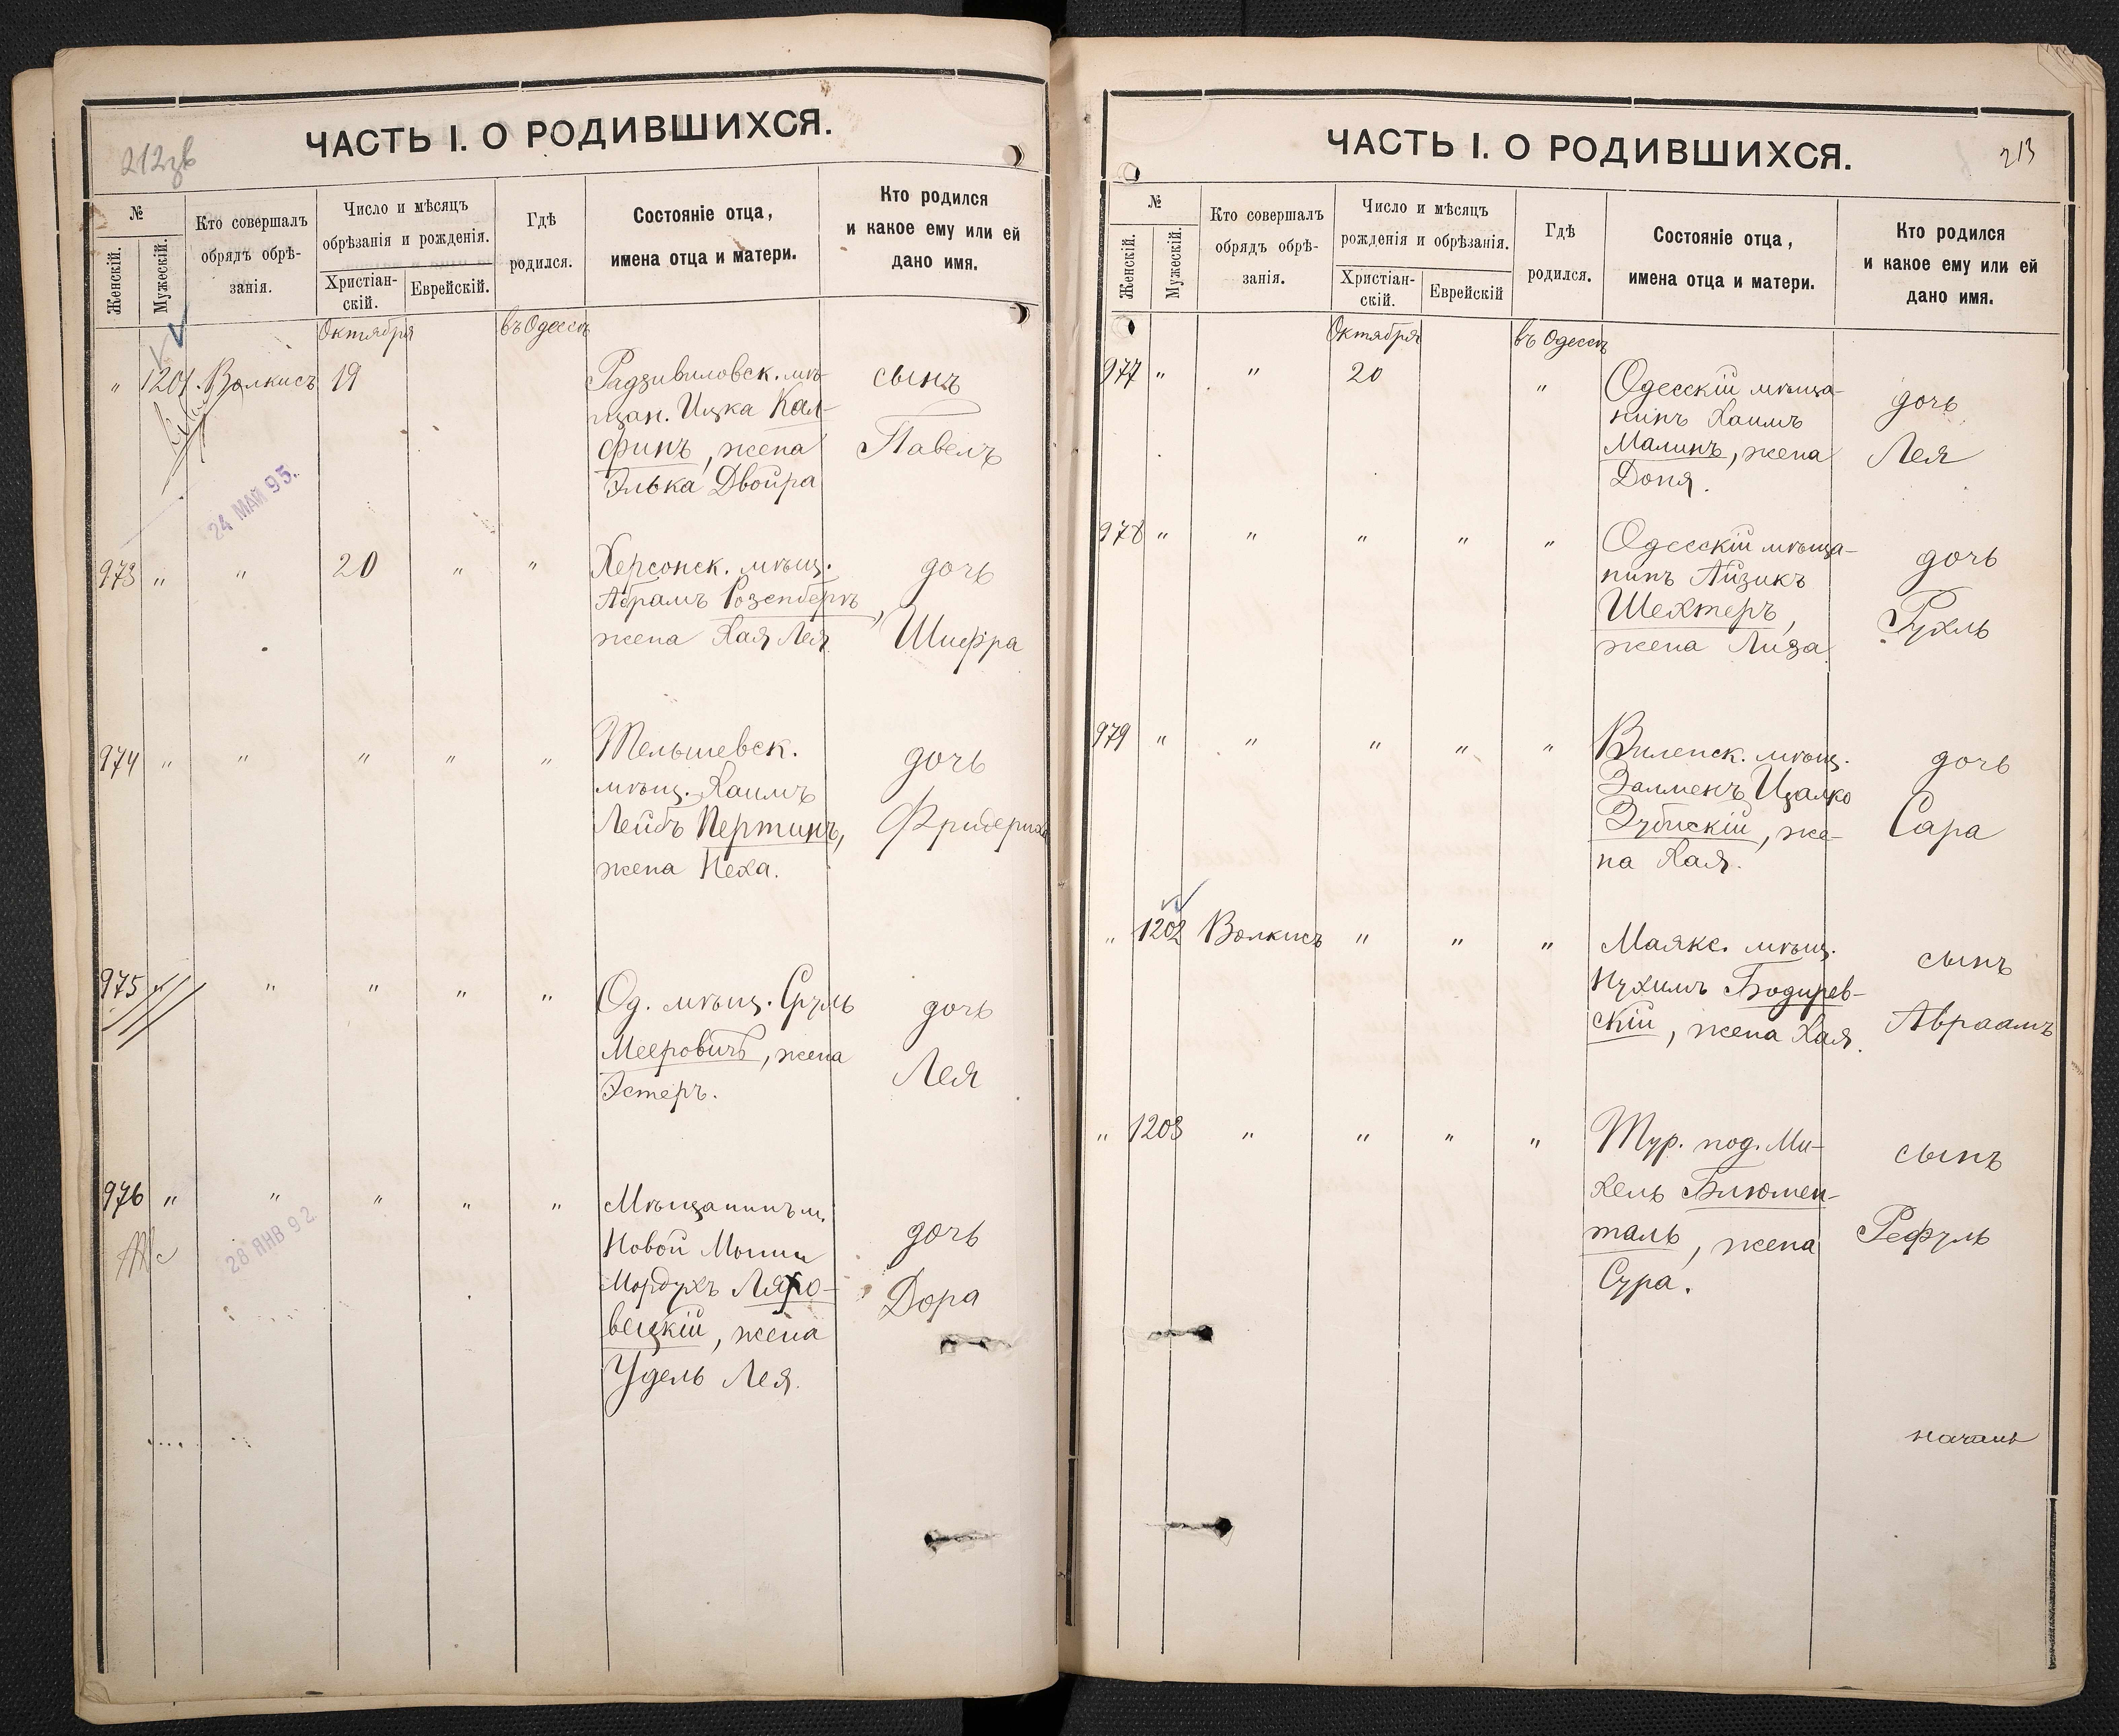 212зв
ЧАСТЬ I. О РОДИВШИХСЯ.
№
Женскій.
Мужескій.
Кто совершалъ
обрядъ обрѣ-
занія.
Число и мѣсяцъ
обрѣзанія и рожденія.
Христіан-
скій.
Еврейскій.
Гдѣ
родился.
Состояніе отца,
имена отца и матери.
Кто родился
и какое ему или ей
дано имя.
Октября
въ Одессѣ
" 1201. Волкисъ 19
Радзивиловск. мѣ-
щан. Ицка Кал-
финъ, жена
Элька Двойра
сынъ
Павелъ
24 МАЙ 95.
973 " " 20 " "
Херсонск. мѣщ.
Абрамъ Розенбергъ,
жена Хая Лея
дочь
Шифра
974 " " " " "
Тельшевск.
мѣщ. Хаимъ
Лейбъ Пертинъ,
жена Неха.
дочь
Фридерика
975 " " " " "
Од. мѣщ. Сруль
Мееровичъ, жена
Эстеръ.
дочь
Лея
976 " " " " "
Мѣщанинъ м.
Новой Мыши
Мордухъ Ляхо-
вецкій, жена
Удель Лея.
дочь
Дора
28 ЯНВ 92
213
ЧАСТЬ I. О РОДИВШИХСЯ.
№
Женскій.
Мужескій.
Кто совершалъ
обрядъ обрѣ-
занія.
Число и мѣсяцъ
рожденія и обрѣзанія.
Христіан-
скій.
Еврейскій
Гдѣ
родился.
Состояніе отца,
имена отца и матери.
Кто родился
и какое ему или ей
дано имя.
Октября
въ Одессѣ
977 " " 20 "
Одесскій мѣща-
нинъ Хаимъ
Малинъ, жена
Доня.
дочь
Лея
978 " " " " "
Одесскій мѣща-
нинъ Айзикъ
Шехтеръ,
жена Лиза
дочь
Рухль
979 " " " " "
Виленск. мѣщ.
Залменъ Ицалко
Зубискій, же-
на Хая.
дочь
Сара
" 1202 Волкисъ " " "
Маякс. мѣщ.
Нухимъ Бодирев-
скій, жена Хая.
сынъ
Авраамъ
" 1203 " " " "
Тур. под. Ми-
хель Блюмен-
таль, жена
Сура.
сынъ
Рефуль